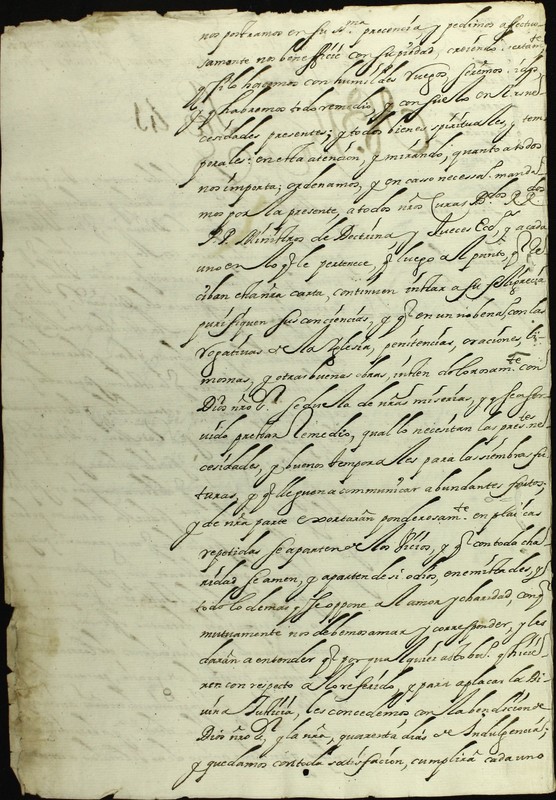 nos postramos en su S.ma precencia y pedimos affectuo
samente nos beneficie con su piedad, creiendo certam.te
q si lo hacemos con humildes ruegos, seremos
y habremos todo remedio, y consuelo en las ne
cesidades presentes; y todos bienes spirituales, y tem
porales: en esta atención, y mirando, quanto a todos
nos importa; ordenamos, y en caso necess.o manda
mos por la presente, a todos nros Curas B.dos, los RR.dos
P.P. Ministros de Doctrina y Jueces Ecc.s, y a cada
uno en lo q le pertenece, q luego al punto, q re
ciban esta nra carta, continuen instar a su feligrecia
purifiquen sus conciencias, y q en un nobenas con las
rogativas de la Iglesia, penitencias, oraciones, li
mosnas, y otras buenas obras, insten dolorosam.te con
Dios nro S.r se duela de nras miserias, y q sea ser
vido prestar remedio, qual lo necesitan las pres.tes ne
cesidades, y buenos temporales para las siembras fu
turas, y q lleguen a communicar abundantes frutos;
y de nra parte exortarán ponderosam.te en platicas
repetidas se aparten de los vicios, y q con toda cha
ridad se amen, y aparten de si odios, enemistades, y
todo lo demas q se oppone al amor y charidad, con q
mutuamente nos debemos amar y corresponder, y les
darán a entender q por qualquiera obra q hicie
ren con respecto a lo referido, y para aplacar la Di
vina Justicia, les concedemos con la bendición de
Dios nro S.r y la nra, quarenta dias de Indulgencias;
y quedamos con toda satisfación, cumplirá cada uno